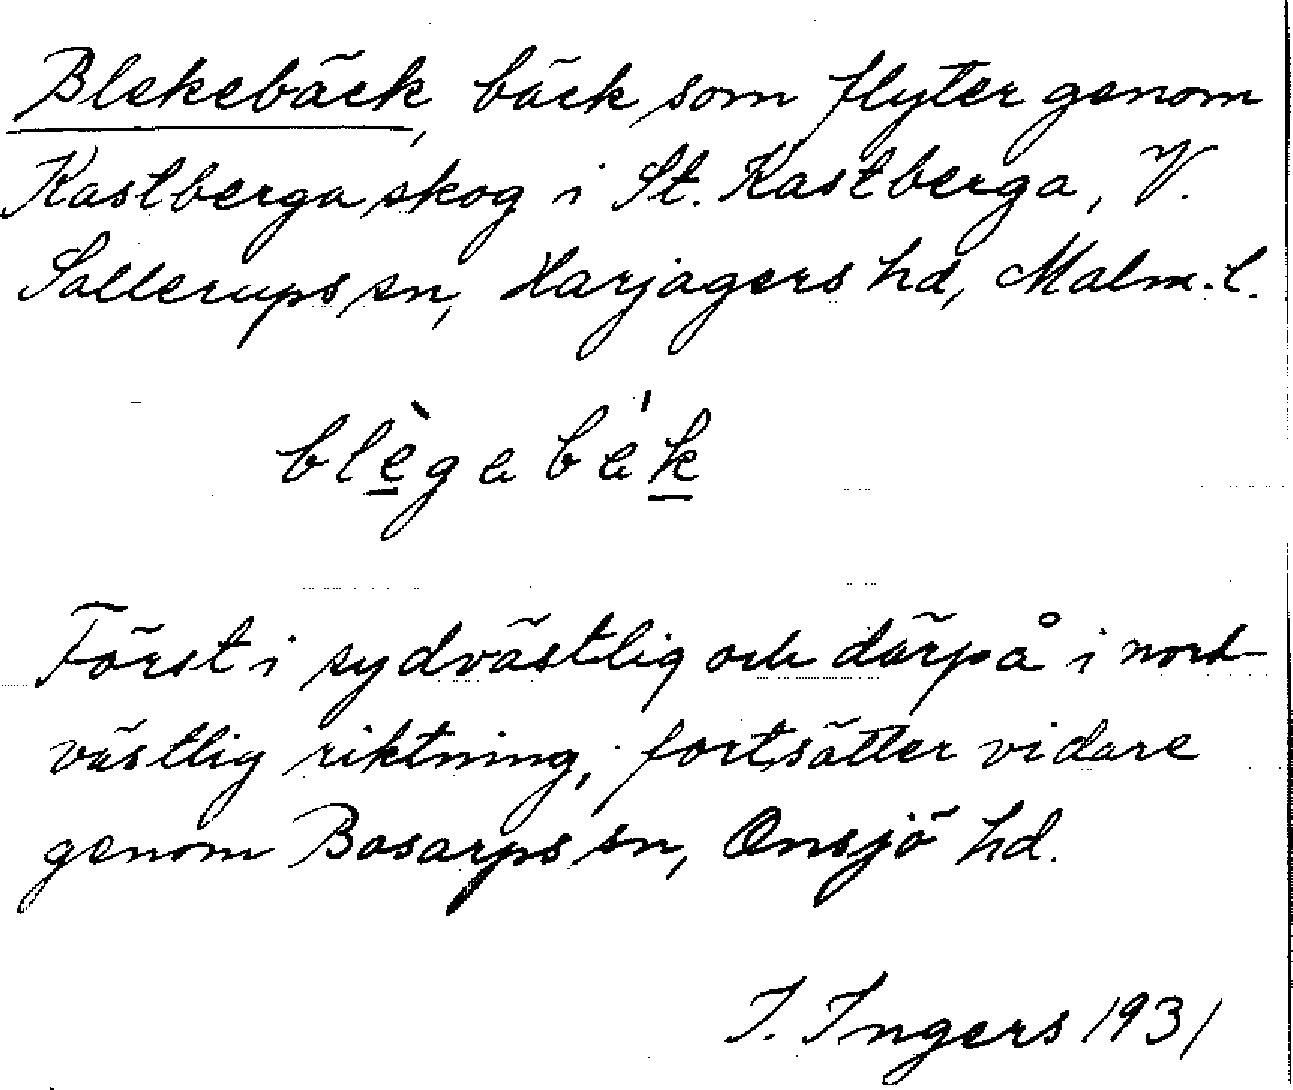 Blekebäck, bäck som flyter genom
Kastberga skog i St. Kastberga, V.
Sallerups sn, Harjagers hd, Malm. l.
blègebék
Först i sydvästlig och därpå i nord-
västlig riktning, fortsätter vidare
genom Bosarps sn, Onsjö hd.
I. Ingers 1931